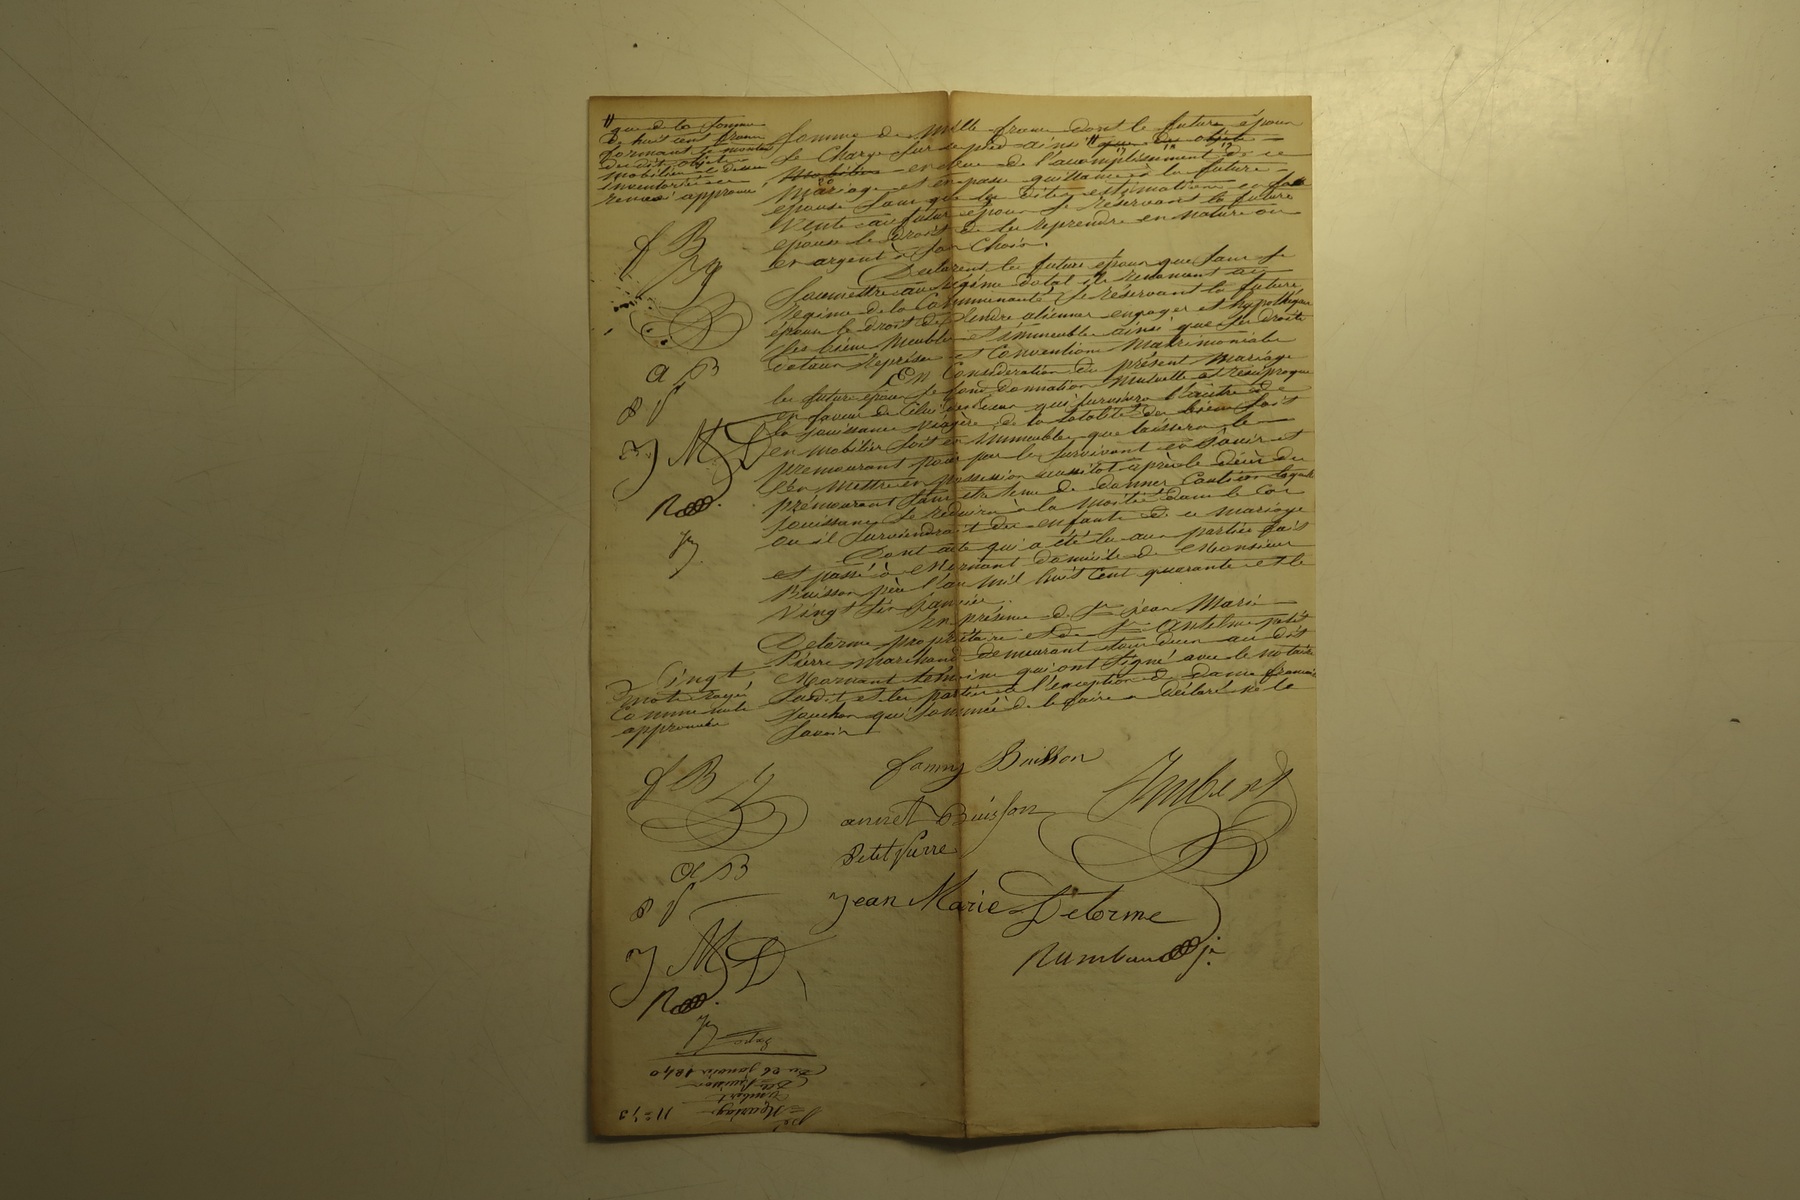 que de la somme
de huit cent francs
formant le montant
desdits objets
mobiliers ci dessus
inventoriés ce
renvoi approuvé
f B
a B
P
J M D
R
somme de Mille francs dont le futur époux
se charge sur le pied ainsi que des objets
mobiliers en vue de l'accomplissement de ce
Mariage et en passe quittance à la future
épouse sans que les dites estimations en fasse
Vente au futur époux se réservant la future
épouse le droit de les reprendre en nature ou
en argent à son Choix.
Déclarent les futurs époux que sans se
soumettre au régime dotal ils renoncent au
Régime de la Communauté se réservant la future
épouse le droit de Vendre aliéner engager et hypothéquer
ses biens Meubles et immeubles ainsi que ses droits
dotaux reprises et Conventions Matrimoniales
En Considération du présent Mariage
les futurs époux se font donnation Mutuelle et réciproque
en faveur de Celui d'entreux qui survivra l'autre de
la jouissance Viagère de la totalité des biens soit
en mobilier soit en immeubles que laissera le
prémourant pour par le survivant en jouir et
s'en mettre en possession aussitôt après le décès du
prémourant sans être tenu de donner Caution laquelle
jouissance se réduira à la moitié dans le Cas
ou il surviendrait des enfants de ce mariage
Dont acte qui a été lu aux parties fait
et passé à Mornant domicile de Monsieur
Buisson père l'an Mil huit Cent quarante et le
Vingt six janvier.
En présence de Sr jean Marie
Delorme propriétaire et de Sr Antelme petit
Pierre marchand demeurant tous deux au dit
Mornant témoins qui ont signé avec le notaire
susdit et les parties à l'exception de Dame françoise
Souchon qui sommée de le faire a déclaré ne le
savoir
Vingt
mots rayés
Comme nuls
approuvés
fanny Buisson
Imbert
annet Buisson
Petit Pierre
jean Marie Delorme
Rambaud jne
f B
a B
P
J M D
R
N° 73
Mariage
Imbert
Dlle Buisson
Du 26 janvier 1840